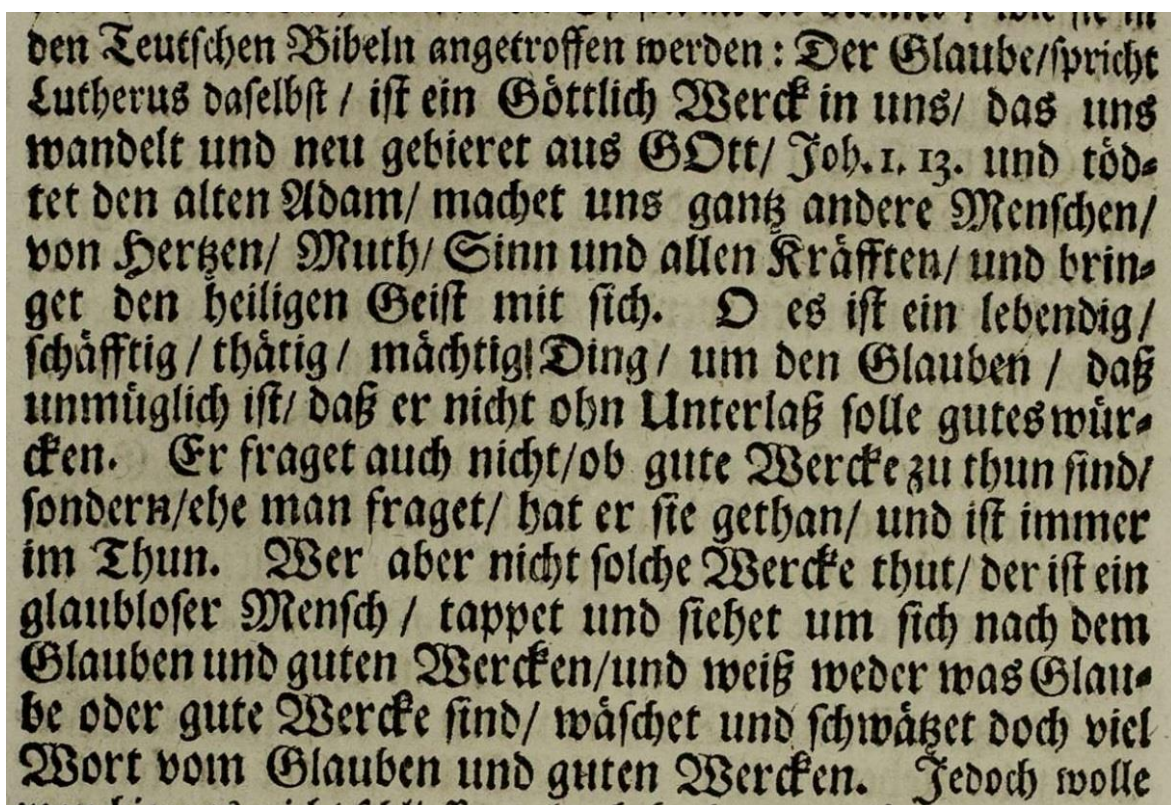 wie sie in
den Teutschen Bibeln angetroffen werden: Der Glaube/spricht
Lutherus daselbst / ist ein Göttlich Werck in uns/ das uns
wandelt und neu gebieret aus GOtt/ Joh. 1. 13. und töd-
tet den alten Adam/ machet uns gantz andere Menschen/
von Hertzen/ Muth/ Sinn und allen Kräfften/ und brin-
get den heiligen Geist mit sich. O es ist ein lebendig/
schäfftig / thätig / mächtig Ding/ um den Glauben / daß
unmüglich ist/ daß er nicht ohn Unterlaß solle gutes wür-
cken. Er fraget auch nicht/ob gute Wercke zu thun sind/
sondern/ehe man fraget/ hat er sie gethan/ und ist immer
im Thun. Wer aber nicht solche Wercke thut/ der ist ein
glaubloser Mensch / tappet und siehet um sich nach dem
Glauben und guten Wercken/und weiß weder was Glau-
be oder gute Wercke sind/ wäschet und schwätzet doch viel
Wort vom Glauben und guten Wercken. Jedoch wolle